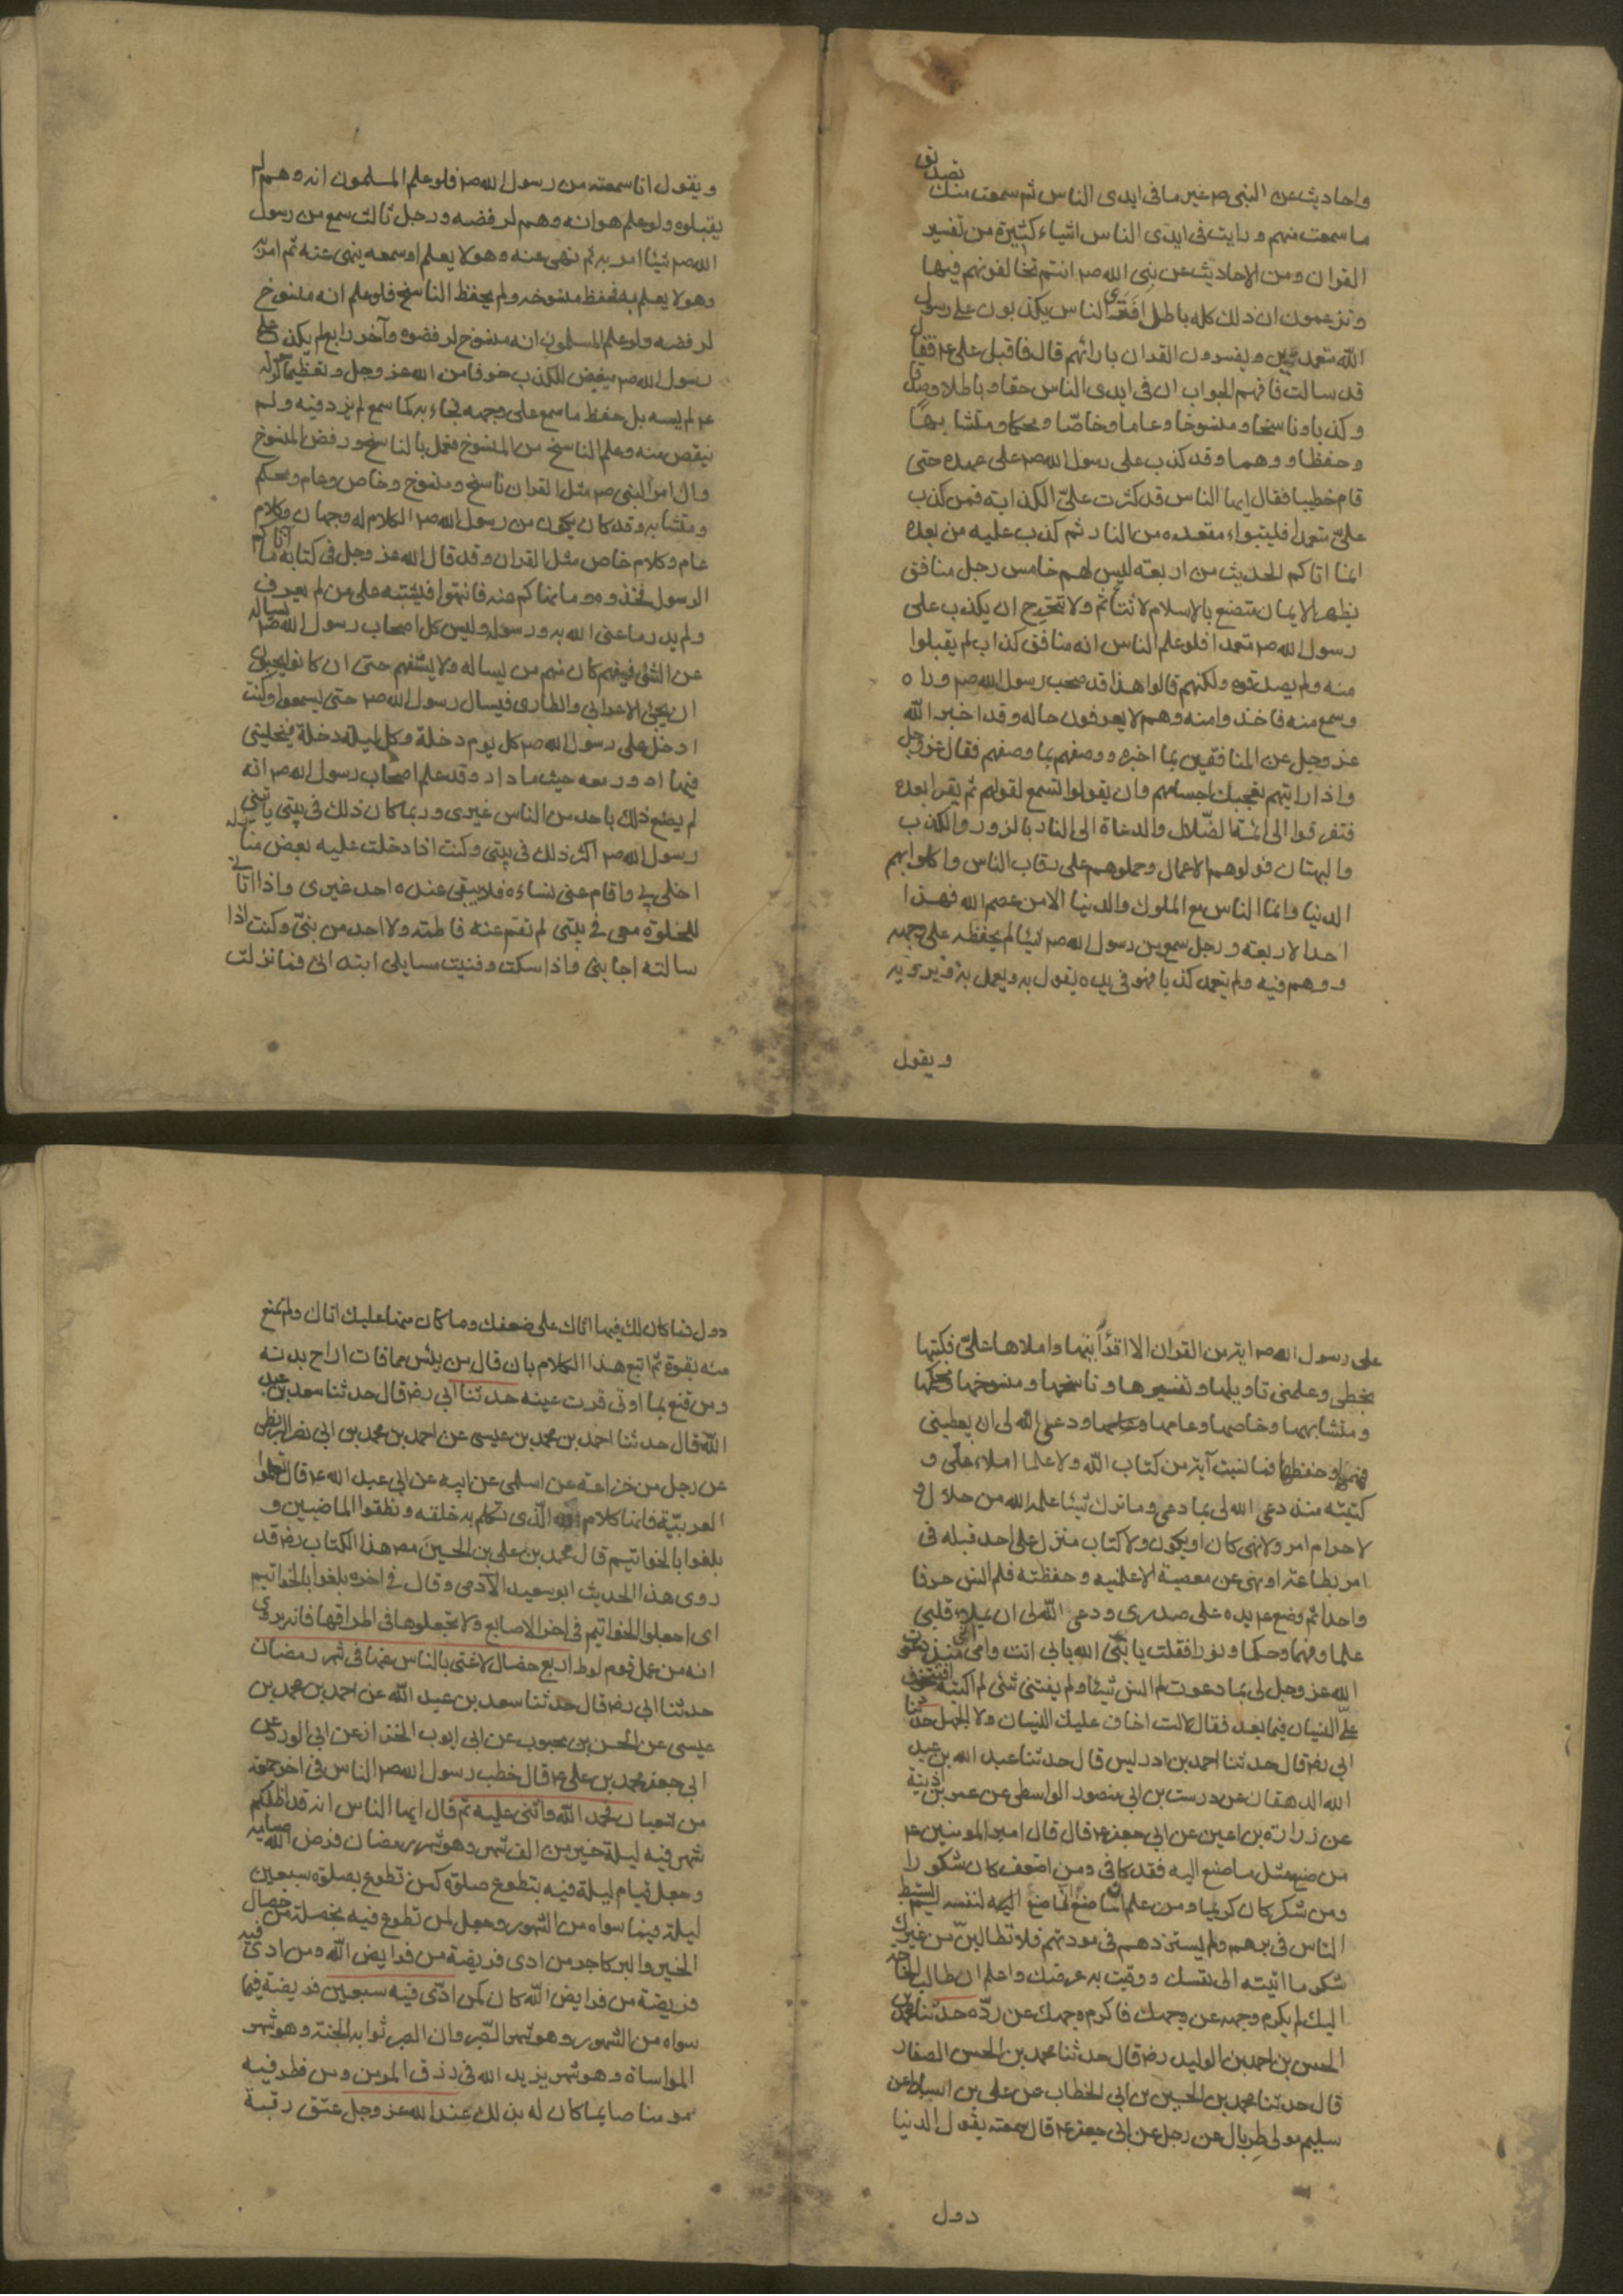 واحاديث عن النبى ص غير ما فى ايدى الناس ثم سمعت منك تصديق
ما سمعت منهم ورايت فى ايدى الناس اشياء كثيرة من تفسير
القران ومن الاحاديث عن نبى الله ص انتم تخالفونهم فيها
وتزعمون ان ذلك كله باطل افترى الناس يكذبون على رسول
الله متعمدين ويفسرون القران بارائهم قال فاقبل على ع فقال
قد سالت فافهم الجواب ان فى ايدى الناس حقا وباطلا وصدقا
وكذبا وناسخا ومنسوخا وعاما وخاصا ومحكما ومتشابها
وحفظا ووهما وقد كذب على رسول الله ص على عهده حتى
قام خطيبا فقال ايها الناس قد كثرت علىّ الكذابة فمن كذب
علىّ متعمدا فليتبواء مقعده من النار ثم كذب عليه من بعده
انما اتاكم الحديث من اربعة ليس لهم خامس رجل منافق
يظهر الايمان متصنع بالاسلام لا يتأثم ولا يتحرج ان يكذب على
رسول الله ص متعمدا فلو علم الناس انه منافق كذاب لم يقبلوا
منه ولم يصدقوه ولكنهم قالوا هذا قد صحب رسول الله ص وراه
وسمع منه فاخذوا منه وهم لا يعرفون حاله وقد اخبر الله
عز وجل عن المنافقين بما اخبره ووصفهم بما وصفهم فقال عز وجل
واذا رايتهم تعجبك اجسامهم وان يقولوا تسمع لقولهم ثم بعده
فتفرقوا الى ائمة الضّلال والدعاة الى النار بالزور والكذب
والبهتان فولوهم الاعمال وحملوهم على رقاب الناس واكلوا بهم
الدنيا وانما الناس مع الملوك والدنيا الا من عصم الله فهذا
احد الاربعة ورجل سمع من رسول الله ص شيئا لم يحفظه على وجهه
ووهم فيه ولم يتعمد كذبا فهو فى يده يقول به ويعمل به ويرويه
ويقول
ويقول انا سمعته من رسول الله ص فلو علم المسلمون انه وهم لم
يقبلوه ولو علم هو انه وهم لرفضه ورجل ثالث سمع من رسول
الله ص شيئا امر به ثم نهى عنه وهو لا يعلم او سمعه ينهى عنه ثم امر به
وهو لا يعلم به فحفظ منسوخه ولم يحفظ الناسخ فلو علم انه منسوخ
لرفضه ولو علم المسلمون انه منسوخ لرفضوه وآخر رابع لم يكذب على
رسول الله ص مبغض للكذب خوفا من الله عز وجل وتعظيما لرسوله
ع لم يسه بل حفظ ما سمع على وجهه فجاء به كما سمع لم يزد فيه ولم
ينقص منه وعلم الناسخ من المنسوخ فعمل بالناسخ ورفض المنسوخ
وان امر النبى ص مثل القران ناسخ ومنسوخ وخاص وعام ومحكم
ومتشابه وقد كان يكون من رسول الله ص الكلام له وجهان وكلام
عام وكلام خاص مثل القران وقد قال الله عز وجل فى كتابه ما اتاكم
الرسول فخذوه وما نهاكم عنه فانتهوا فيشتبه على من لم يعرف
ولم يدر ما عنى الله به ورسوله وليس كل اصحاب رسول الله ص يساله
عن الشئ فيفهم كان منهم من يساله ولا يستفهم حتى ان كانوا ليحبون
ان يجئ الاعرابى والطارى فيسال رسول الله ص حتى يسمعوا وكنت
ادخل على رسول الله ص كل يوم دخلة وكل ليلة دخلة فيخلينى
فيها ادور معه حيث ما دار وقد علم اصحاب رسول الله ص انه
لم يصنع ذلك باحد من الناس غيرى وربما كان ذلك فى بيتى ياتينى
رسول الله ص اكثر ذلك فى بيتى وكنت اذا دخلت عليه بعض منازله
اخلى بى واقام عنى نساءه فلا يبقى عنده احد غيرى واذا اتانى
للخلوة معى فى بيتى لم تقم عنه فاطمة ولا احد من بنىّ وكنت اذا
سالته اجابنى واذا سكت وفنيت مسايلى ابتدانى فما نزلت
على رسول الله ص اية من القران الا اقرأنيها واملاها علىّ فكتبتها
بخطى وعلمنى تاويلها وتفسيرها وناسخها ومنسوخها ومحكمها
ومتشابهها وخاصها وعامها ودعى الله لى ان يعطينى
فهمها وحفظها فما نسيت آية من كتاب الله ولا علما املاه علىّ و
كتبته منذ دعى الله لى بما دعى وما ترك شيئا علمه الله من حلال و
لا حرام امر ولا نهى كان او يكون ولا كتاب منزل على احد قبله فى
امر بطاعة او نهى عن معصية الا علمنيه وحفظته فلم انس حرفا
واحدا ثم وضع ع يده على صدرى ودعى الله لى ان يملاء قلبى
علما وفهما وحكما ونورا فقلت يا نبى الله بابى انت وامى منذ دعوت
الله عز وجل لى بما دعوت لم انس شيئا ولم يفتنى شئ لم اكتبه افتتخوف
علىّ النسيان فيما بعد فقال لا لست اخاف عليك النسيان ولا الجهل حدثنا
ابى رض قال حدثنا احمد بن ادريس قال حدثنا عبد الله بن عبيد
الله الدهقان عن درست بن ابى منصور الواسطى عن عمر بن اذينة
عن زرارة بن اعين عن ابى جعفر ع قال قال امير المومنين ع
من صنع مثل ما صنع اليه فقد كافى ومن اضعف كان شكورا
ومن شكر كان كريما ومن علم ان ما صنع انما صنع اليه لنفسه لم يستبط
الناس فى برهم ولم يستزدهم فى مودتهم فلا تطالبنّ من غيرك
شكر ما اتيته الى نفسك ووقيت به عرضك واعلم ان طالب الحاجة
اليك لم يكرم وجهه عن وجهك فاكرم وجهك عن ردّه حدثنا محمد بن
الحسن بن احمد بن الوليد رض قال حدثنا محمد بن الحسن الصفار
قال حدثنا محمد بن الحسين بن ابى الخطاب عن على بن اسباط عن
سليم مولى طربال عن رجل عن ابى جعفر ع قال سمعته يقول الدنيا
دول
دول فما كان لك فيها اتاك على ضعفك وما كان منها عليك اتاك ولم تمتنع
منه بقوة ثم اتبع هذا الكلام بان قال من يئس مما فات اراح بدنه
ومن قنع بما اوتى قرت عينه حدثنا ابى رض قال حدثنا سعد بن عبد
الله قال حدثنا احمد بن محمد بن عيسى عن احمد بن محمد بن ابى نصر البزنطى
عن رجل من خزاعة عن اسلمى عن ابيه عن ابى عبد الله ع قال تعلموا
العربيّة فانها كلام الله الّذى تكلم به خلقه ونظقوا الماضيين و
بلغوا بالخواتيم قال محمد بن على بن الحسين مص هذا الكتاب رض قد
روى هذا الحديث ابو سعيد الآدمى وقال فى اخره بلغوا بالخواتيم
اى اجعلوا الخواتيم فى اخر الاصابع ولا تجعلوها فى اطرافها فانه يروى
انه من عمل قوم لوط اربع خصال لاغنى بالناس عنها فى شهر رمضان
حدثنا ابى رض قال حدثنا سعد بن عبد الله عن احمد بن محمد بن
عيسى عن الحسن بن محبوب عن ابى ايوب الخزاز عن ابى الورد عن
ابى جعفر محمد بن على ع قال خطب رسول الله ص الناس فى اخر جمعة
من شعبان فحمد الله واثنى عليه ثم قال ايها الناس انه قد اظلكم
شهر فيه ليلة خير من الف شهر وهو شهر رمضان فرض الله صيامه
وجعل قيام ليلة فيه بتطوع صلوة كمن تطوع بصلوة سبعين
ليلة فيما سواه من الشهور وجعل لمن تطوع فيه بخصلة من خصال
الخير والبر كاجر من ادى فريضة من فرايض الله ومن ادى فيه
فريضة من فرايض الله كان كمن ادّى فيه سبعين فريضة فيما
سواه من الشهور وهو شهر الصبر وان الصبر ثوابه الجنة وهو شهر
المواساة وهو شهر يزيد الله فى رزق المومن ومن فطر فيه
مومنا صايما كان له بذلك عند الله عز وجل عتق رقبة